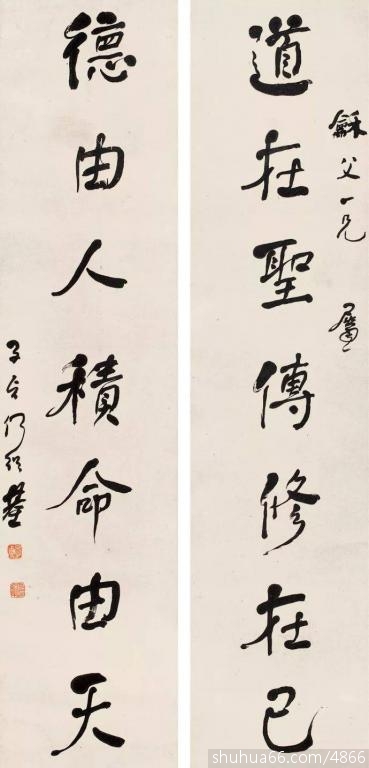 龢父一兄 屬
道在聖傳修在己
德由人積命由天
子貞何紹基
shuhua66.com/4866